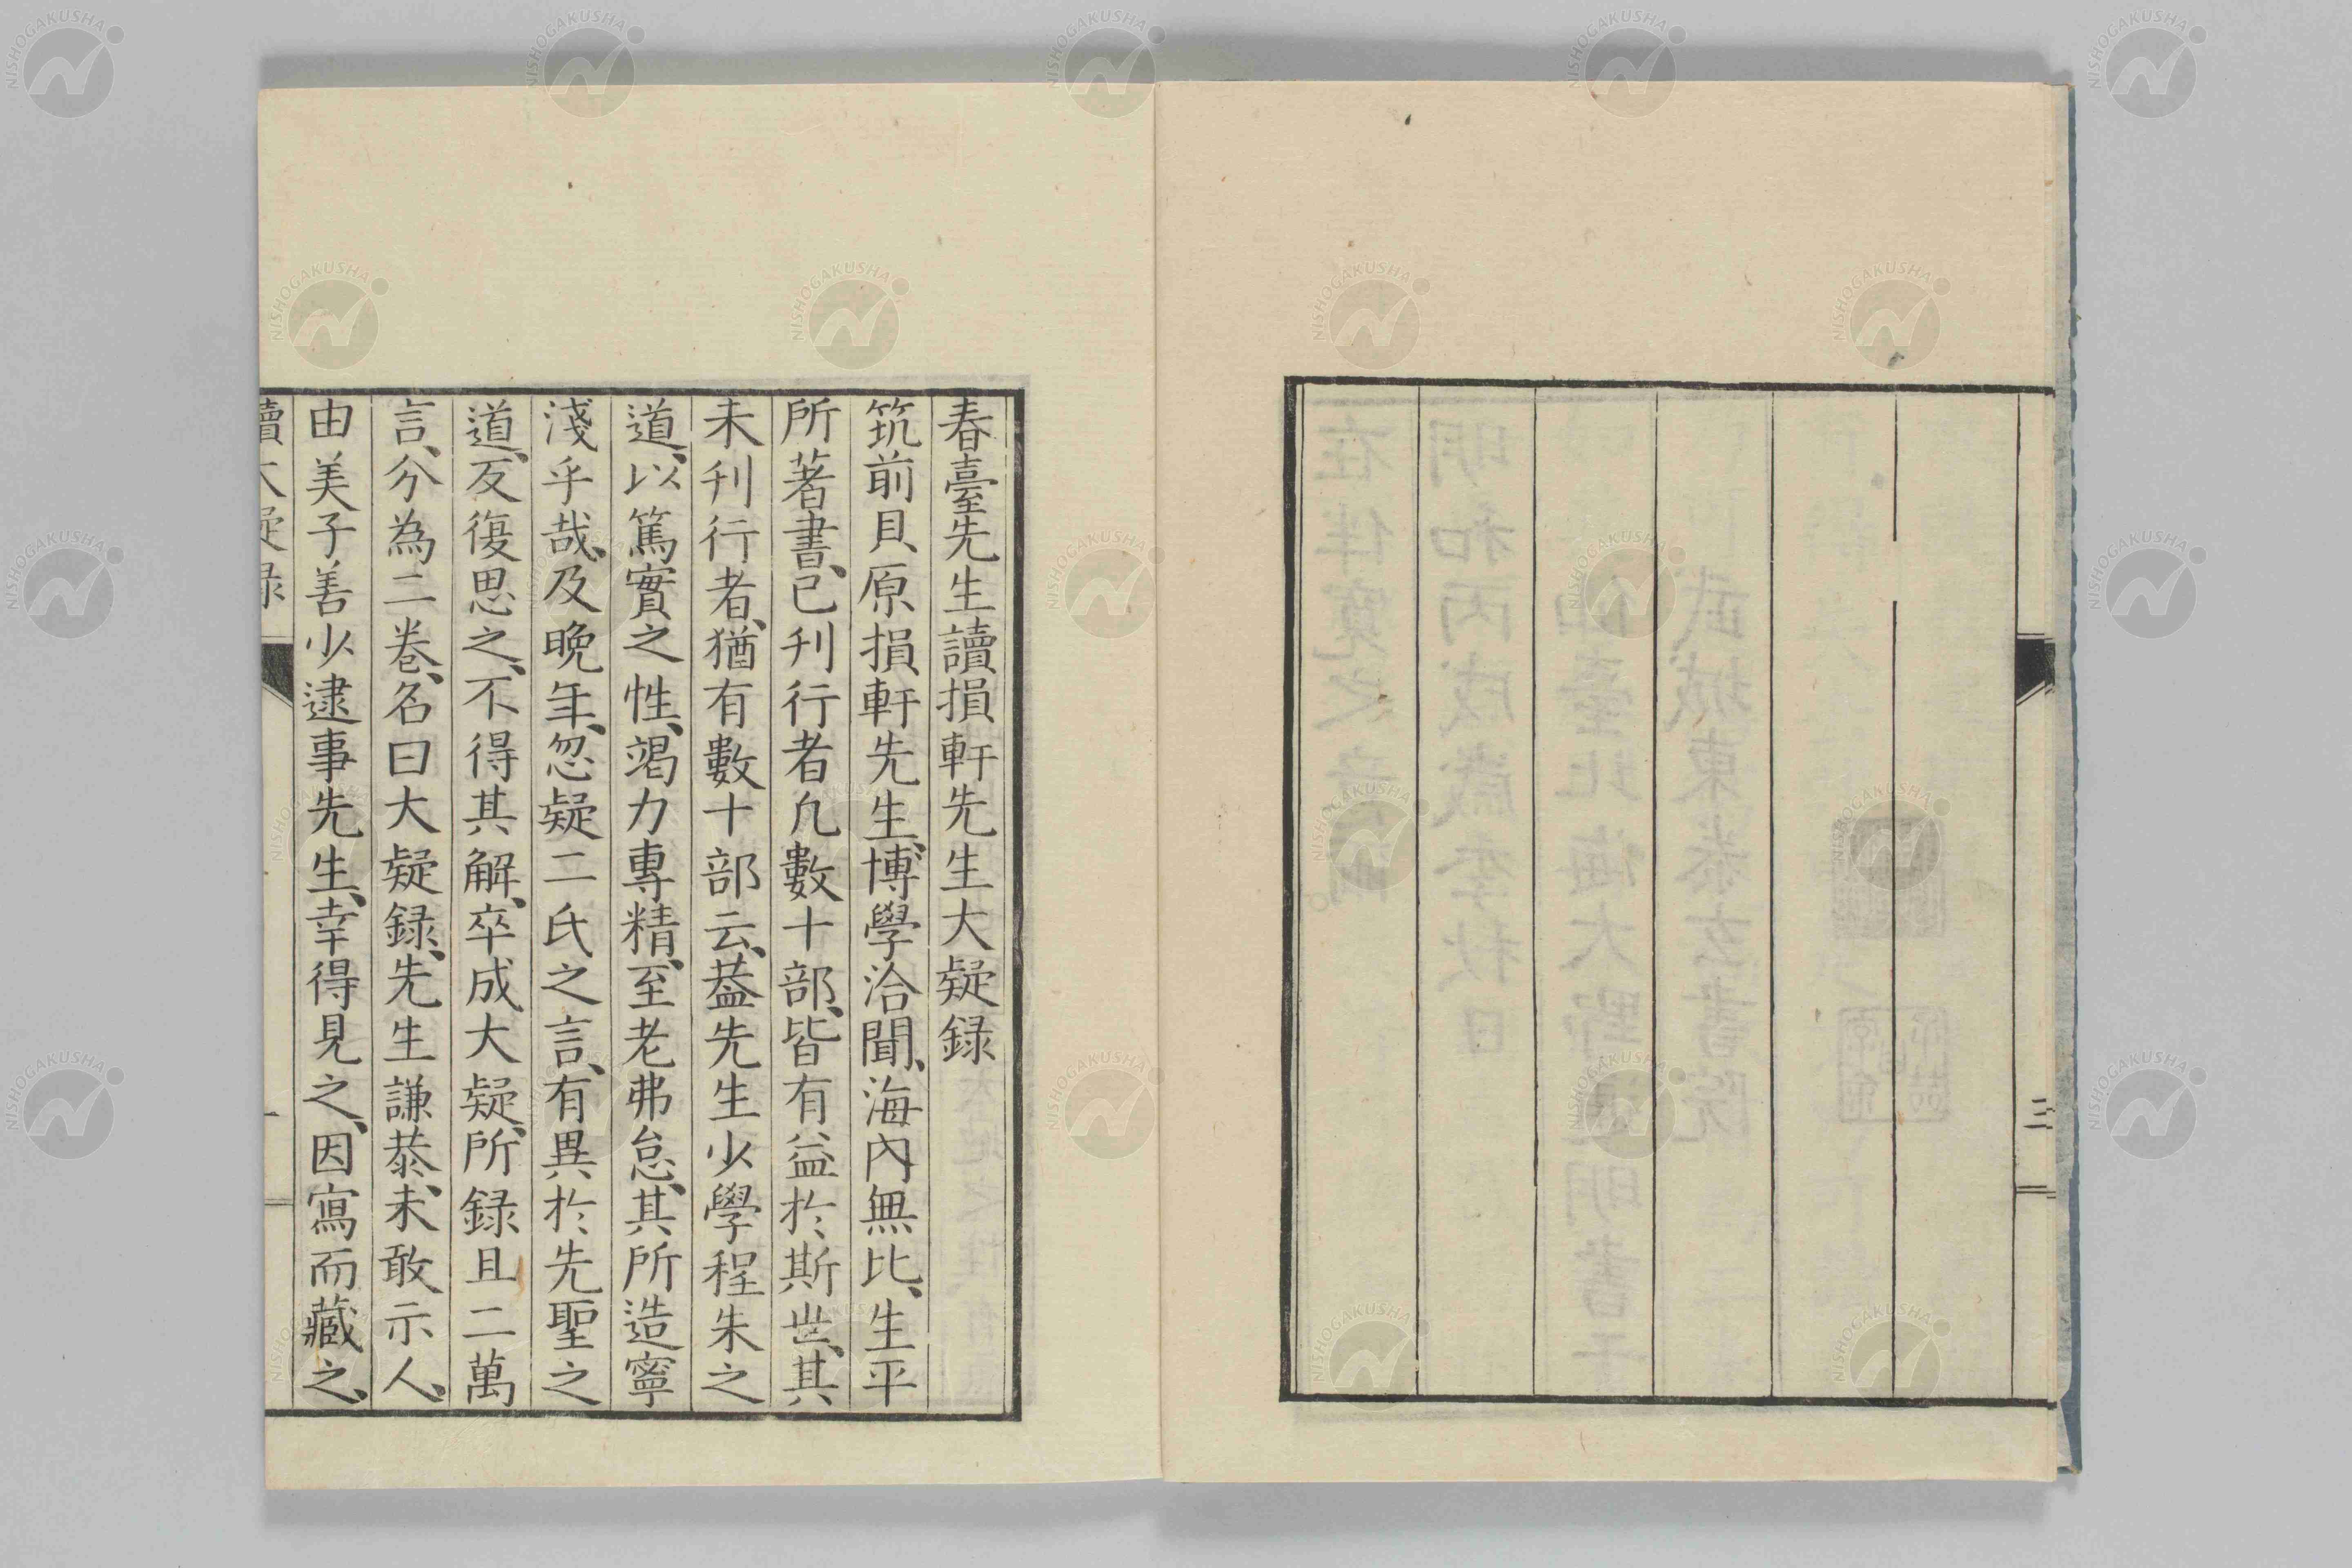 三
春臺先生讀損軒先生大疑録
筑前貝原損軒先生、博學洽聞、海內無比、生平
所著書、已刊行者凡數十部、皆有益於斯世、其
未刊行者、猶有數十部云、葢先生少學程朱之
道、以篤實之性、竭力專精、至老弗怠、其所造寧
淺乎哉、及晚年、忽疑二氏之言、有異於先聖之
道、反復思之、不得其解、卒成大疑、所録且二萬
言、分為二卷、名曰大疑録、先生謙恭、未敢示人、
由美子善少逮事先生、幸得見之、因寫而藏之、
讀大疑録
一
NISHOGAKUSHA